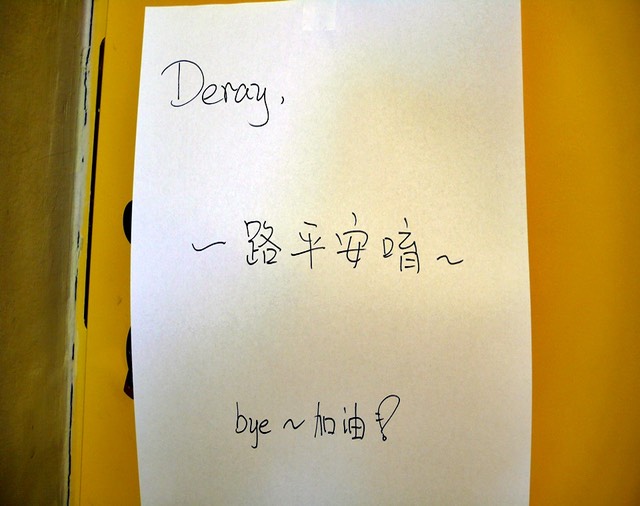 Deray,
一路平安唷~
bye~加油!